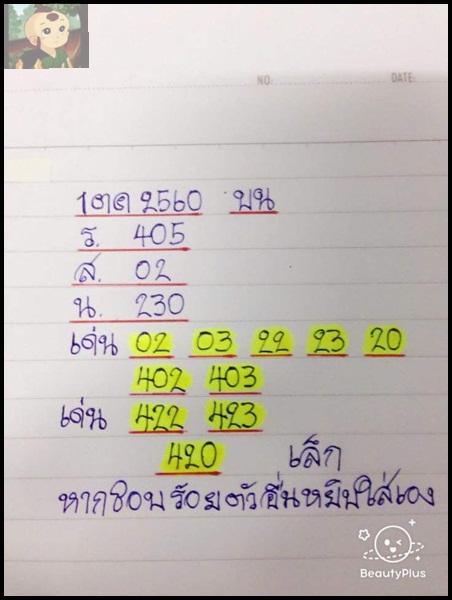 NO. DATE.
1 ตค 2560 บน
ร. 405
ส. 02
น. 230
เด่น 02 03 22 23 20
402 403
เด่น 422 423
420 เล็ก
หากชอบร้อยตัวอื่นหยิบใส่เอง
BeautyPlus